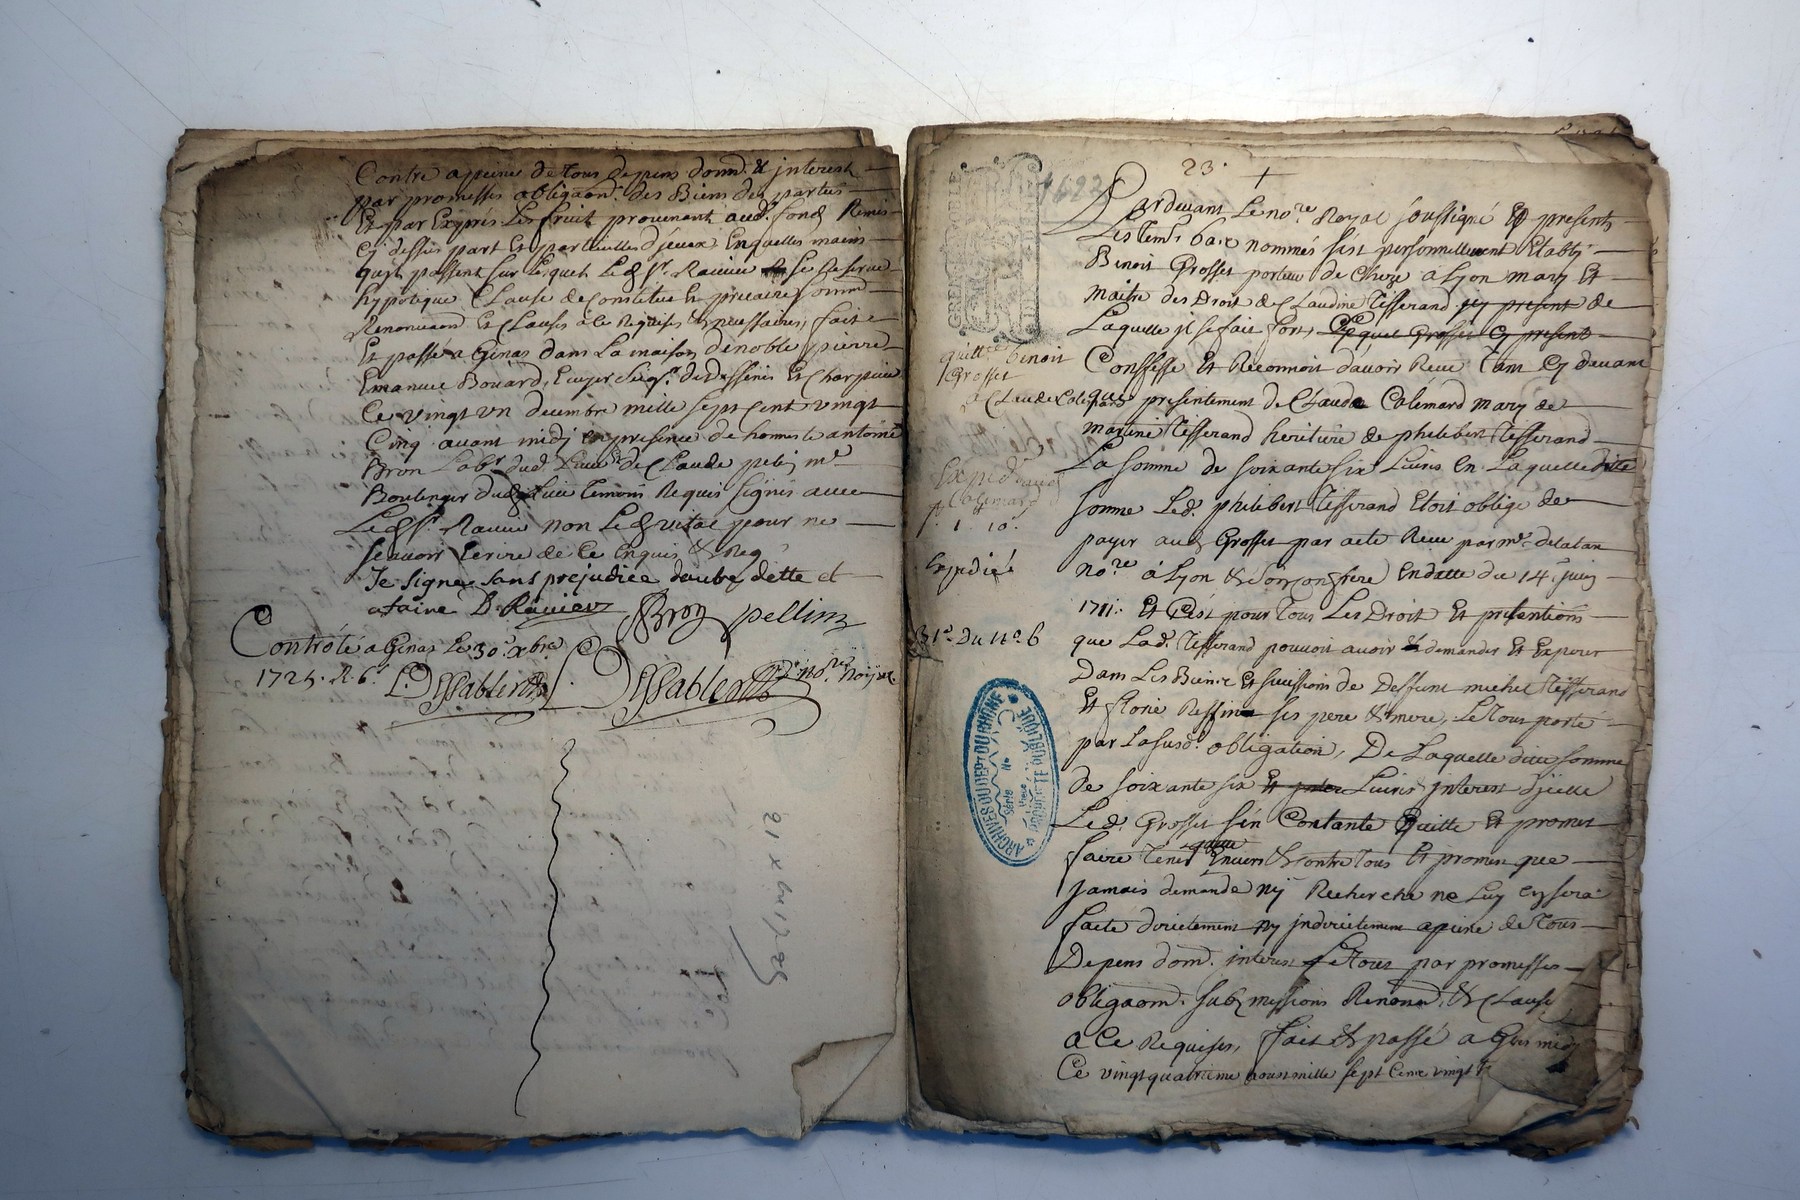 Contre a peine de tous depens dom. & interest
par promesses obligaon. des Biens des parties
Et par Expris Les fruit provenant aud. fond Remis
Cy dessus part Et particulles d'jceux Enquelles mains
quils passent sur Lesquels Led. Sr. Ravier se Reserve
hypotique Clause de Constitut Et precaire somm
Renonciaon Et Clauses à ce Requises & necessaires, fait
Et passé a Genas dans La maison de noble pierre
Emanuel Bouard, Ecuyer Seigr. de dessenis Et Charpieu
Ce vingt un decembre mille sept cent vingt
Cinq avant midy En presence de honneste antoine
Bron Labr. dud. Lieu & de Claude pelin me
Boulenger dud. Lieu temoins Requis signés avec
Led. Sr. Ravier non Led. vital pour ne
scavoir Ecrire de Ce Enquis & Req.
Je signe sans prejudice d'autre dette et
afaire D Ravier
Bron pellin
Contrôlé a Genas Le 30e. xbre
1725. R. 6s. Dessablen
Dessablen nore. Royal
21 xbre 1725
23. +
1692
Pardevant Le nore. Royal soussigné Et presents
Les tems. bas nommés s'est personnellement Etably
Benoit Grosset porteur de Chaize a Lyon mary Et
maitre des Droit de Claudine Tisserand jcy present de
Laquelle jl se fait fort, Lequel Grosset Cy present
Conffesse Et Reconnoit d'avoir Reçu tant Cy devant
que presentement de Claude Colemard mary de
martine Tisserand heritiere de philibert Tisserand
La somme de soixante six Livres En Laquelle ditte
somme Led. philibert Tisserand Etoit obligé de
payer aud. Grosset par acte Reçu par me. delatan
nore. à Lyon & son confrere En datte du 14e. juin
1711: Et C'est pour tous Les Droit Et pretentions
que Lad. Tisserand pouvoit avoir & demander Et Experer
Dans Les Biens Et sucessions de Deffunt michel Tisserand
Et florie Reffin ses pere & mere, Le tous porté
par Lasusd. obligation, De Laquelle ditte somme
de soixante six Livres jnterest d'jcelle
Led. Grosset s'en Contante Quitte Et promet
faire tenir quitte Envers & contre tous Et promet que
jamais demande ny Recherche ne Luy En sera
faite directement ny jndirectement a peine de tous
Depens dom. jnterest Le tous par promesses
obligaom. submissions Renonon. & Clause
a Ce Requises, fait & passé a
Ce vingt quatrieme aoust mille sept Cent vingt
quittce. benoit
Grosset
a Claude Colemard
Exped.
Colemard
1. 10.
Expedié
Du
GREN
ARCHIVES DU DEPT DU RHÔNE
Série
No
PROPRIÉTÉ PUBLIQUE